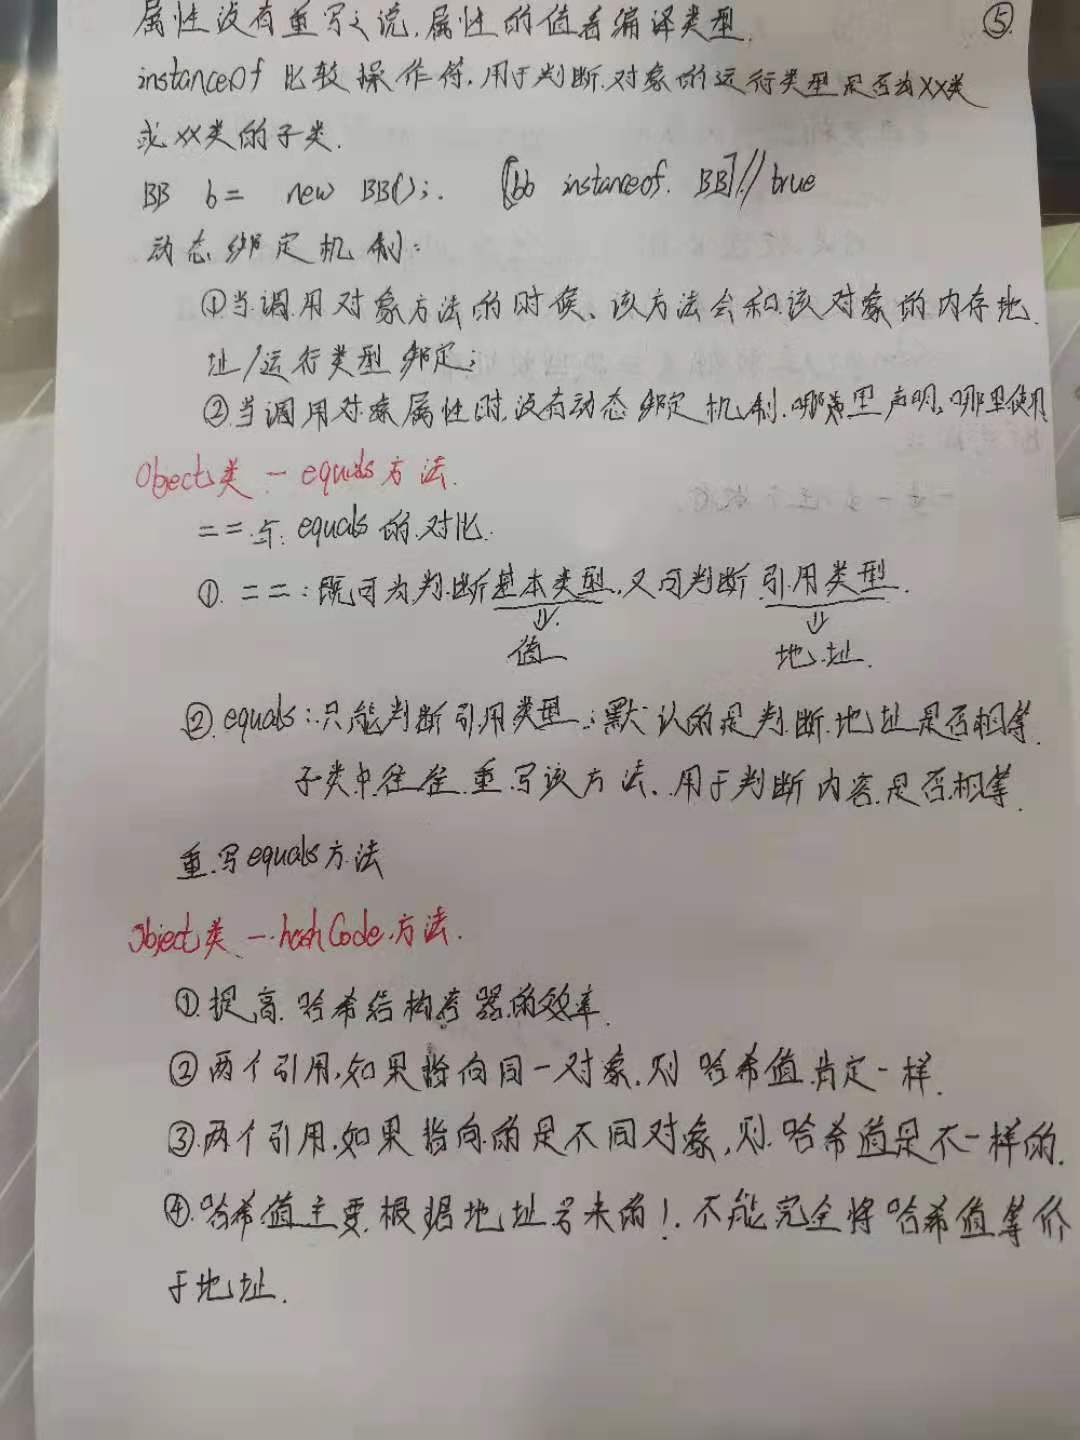 属性没有重写之说,属性的值看编译类型. ⑤
instanceof 比较操作符,用于判断对象的运行类型是否为XX类
或XX类的子类.
BB b = new BB(); [bb instanceof BB] // true
动态绑定机制:
①当调用对象方法的时候、该方法会和该对象的内存地
址/运行类型 绑定;
②当调用对象属性时,没有动态绑定机制.哪里声明,哪里使用
Object类 — equals方法.
==与 equals的对比.
①. ==:既可为判断基本类型,又可判断引用类型.
值 地址.
②.equals:只能判断引用类型:默认的是判断地址是否相等.
子类中往往重写该方法、用于判断内容是否相等.
重写equals方法
Object类 — hashCode方法.
①.提高哈希结构容器的效率.
②两个引用,如果指向同一对象,则哈希值肯定一样.
③.两个引用,如果指向的是不同对象,则哈希值是不一样的.
④.哈希值主要根据地址号来的!.不能完全将哈希值等价
于地址.